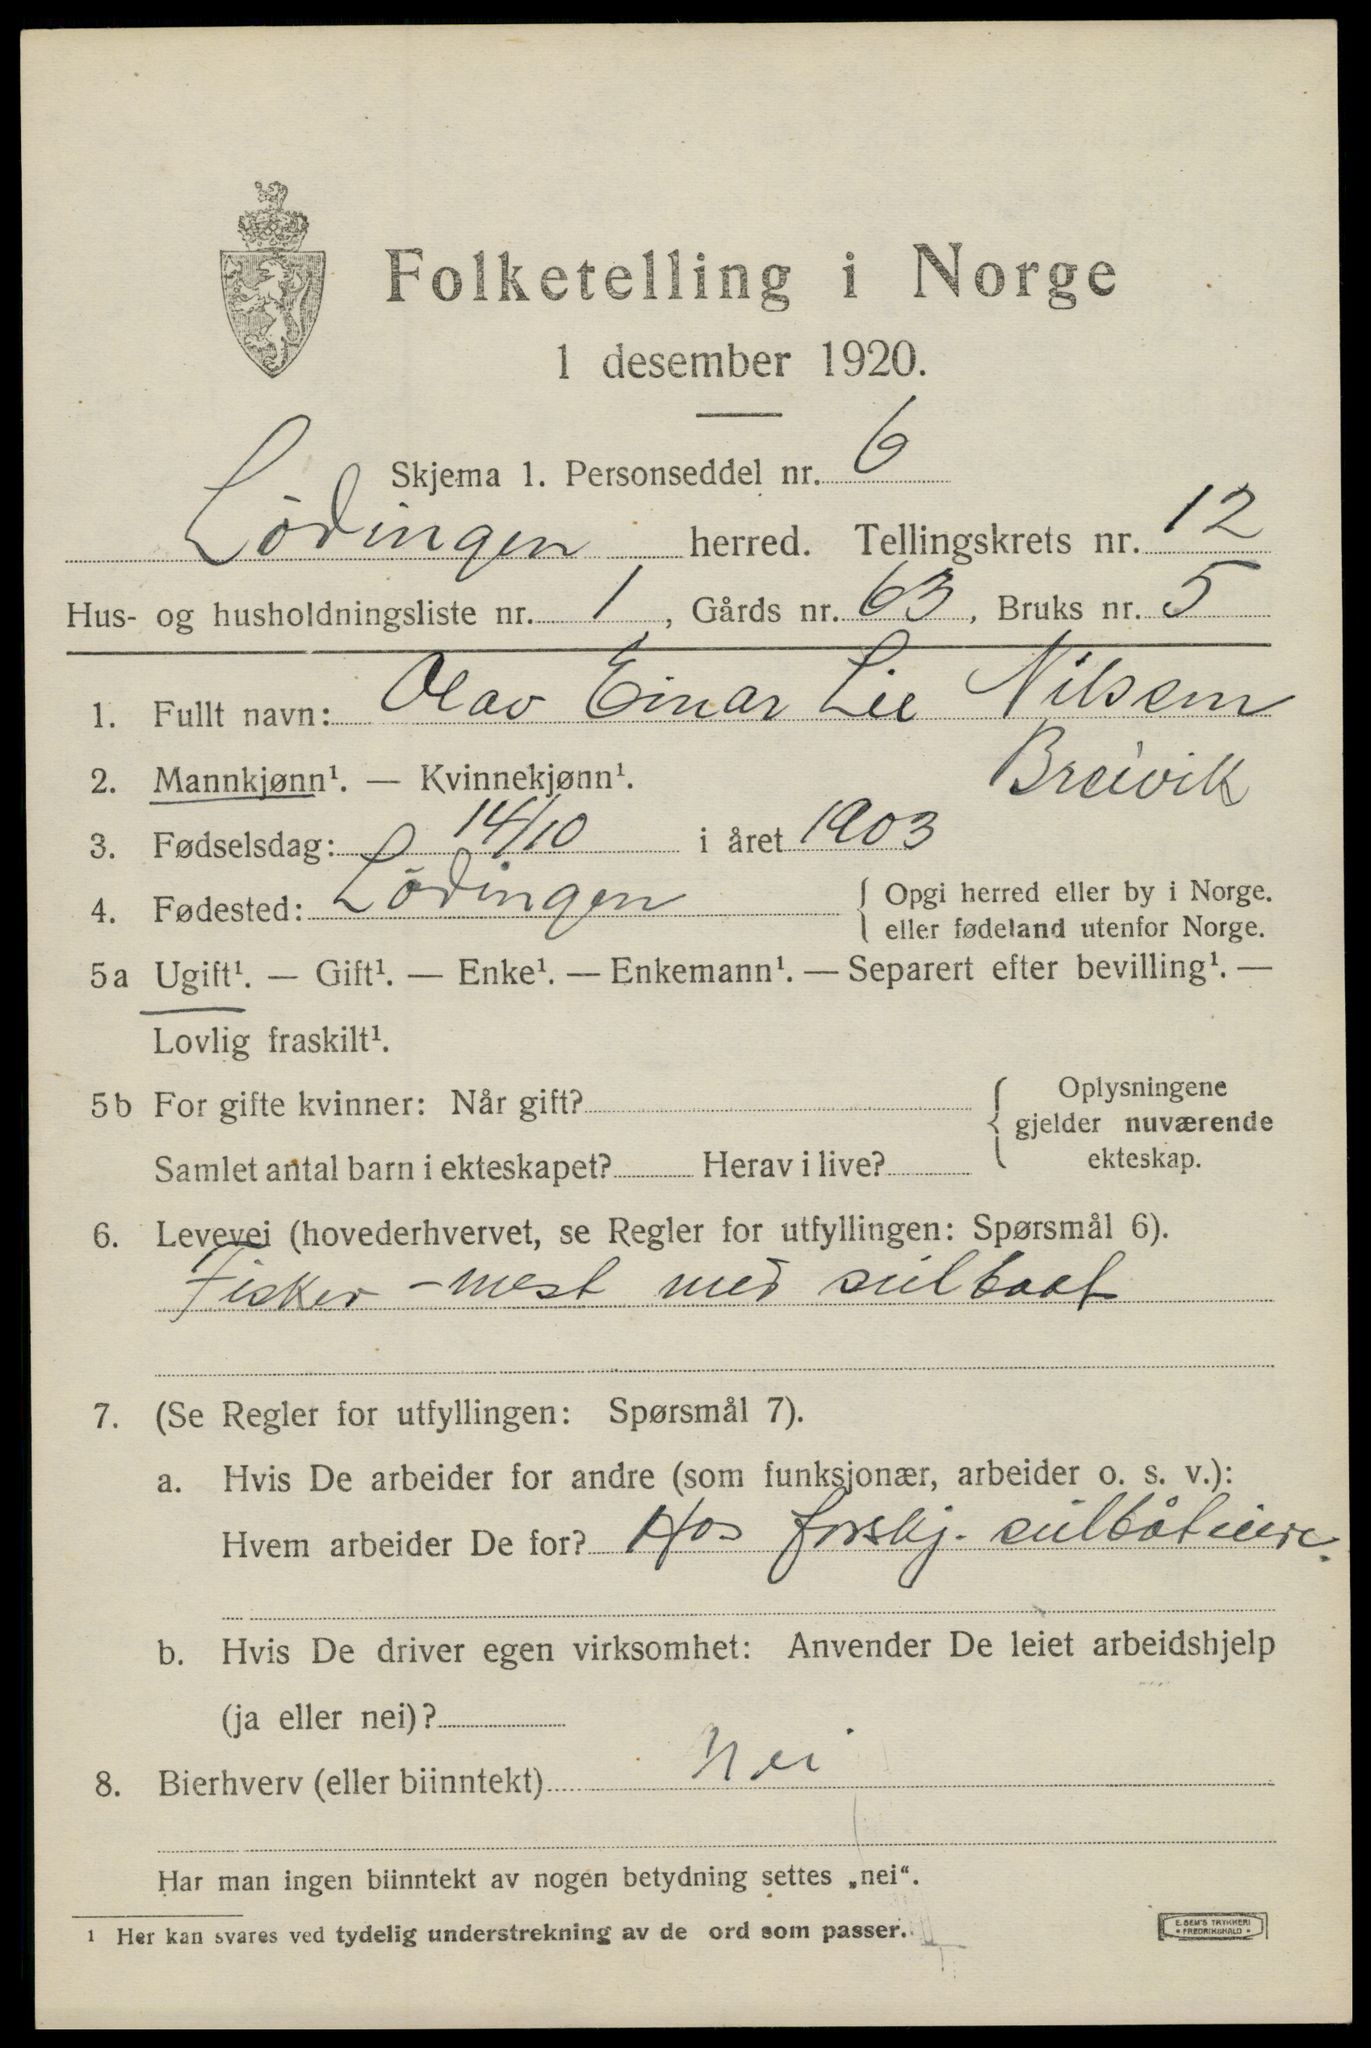 Folketelling i Norge
1 desember 1920.
Skjema 1. Personseddel nr. 6
Lödingen herred. Tellingskrets nr. 12
Hus- og husholdningsliste nr. 1, Gårds nr. 63, Bruks nr. 5
1. Fullt navn: Olav Einar Lie Nilsem
Breivik
2. Mannkjønn¹. — Kvinnekjønn¹.
3. Fødselsdag: 14/10 i året 1903
4. Fødested: Lödingen { Opgi herred eller by i Norge.
eller fødeland utenfor Norge.
5a Ugift¹. — Gift¹. — Enke¹. — Enkemann¹. — Separert efter bevilling¹. —
Lovlig fraskilt¹.
5b For gifte kvinner: Når gift? { Oplysningene
gjelder nuværende
Samlet antal barn i ekteskapet? Herav i live? ekteskap.
6. Levevei (hovederhvervet, se Regler for utfyllingen: Spørsmål 6).
Fisker - mest med snilbaat
7. (Se Regler for utfyllingen: Spørsmål 7).
a. Hvis De arbeider for andre (som funksjonær, arbeider o. s. v.):
Hvem arbeider De for? Hos forskj. snilbåteiere.
b. Hvis De driver egen virksomhet: Anvender De leiet arbeidshjelp
(ja eller nei)?
8. Bierhverv (eller biinntekt) Nei
Har man ingen biinntekt av nogen betydning settes „nei“.
¹ Her kan svares ved tydelig understrekning av de ord som passer.
E. SEM'S TRYKKERI
• FREDRIKSHALD •